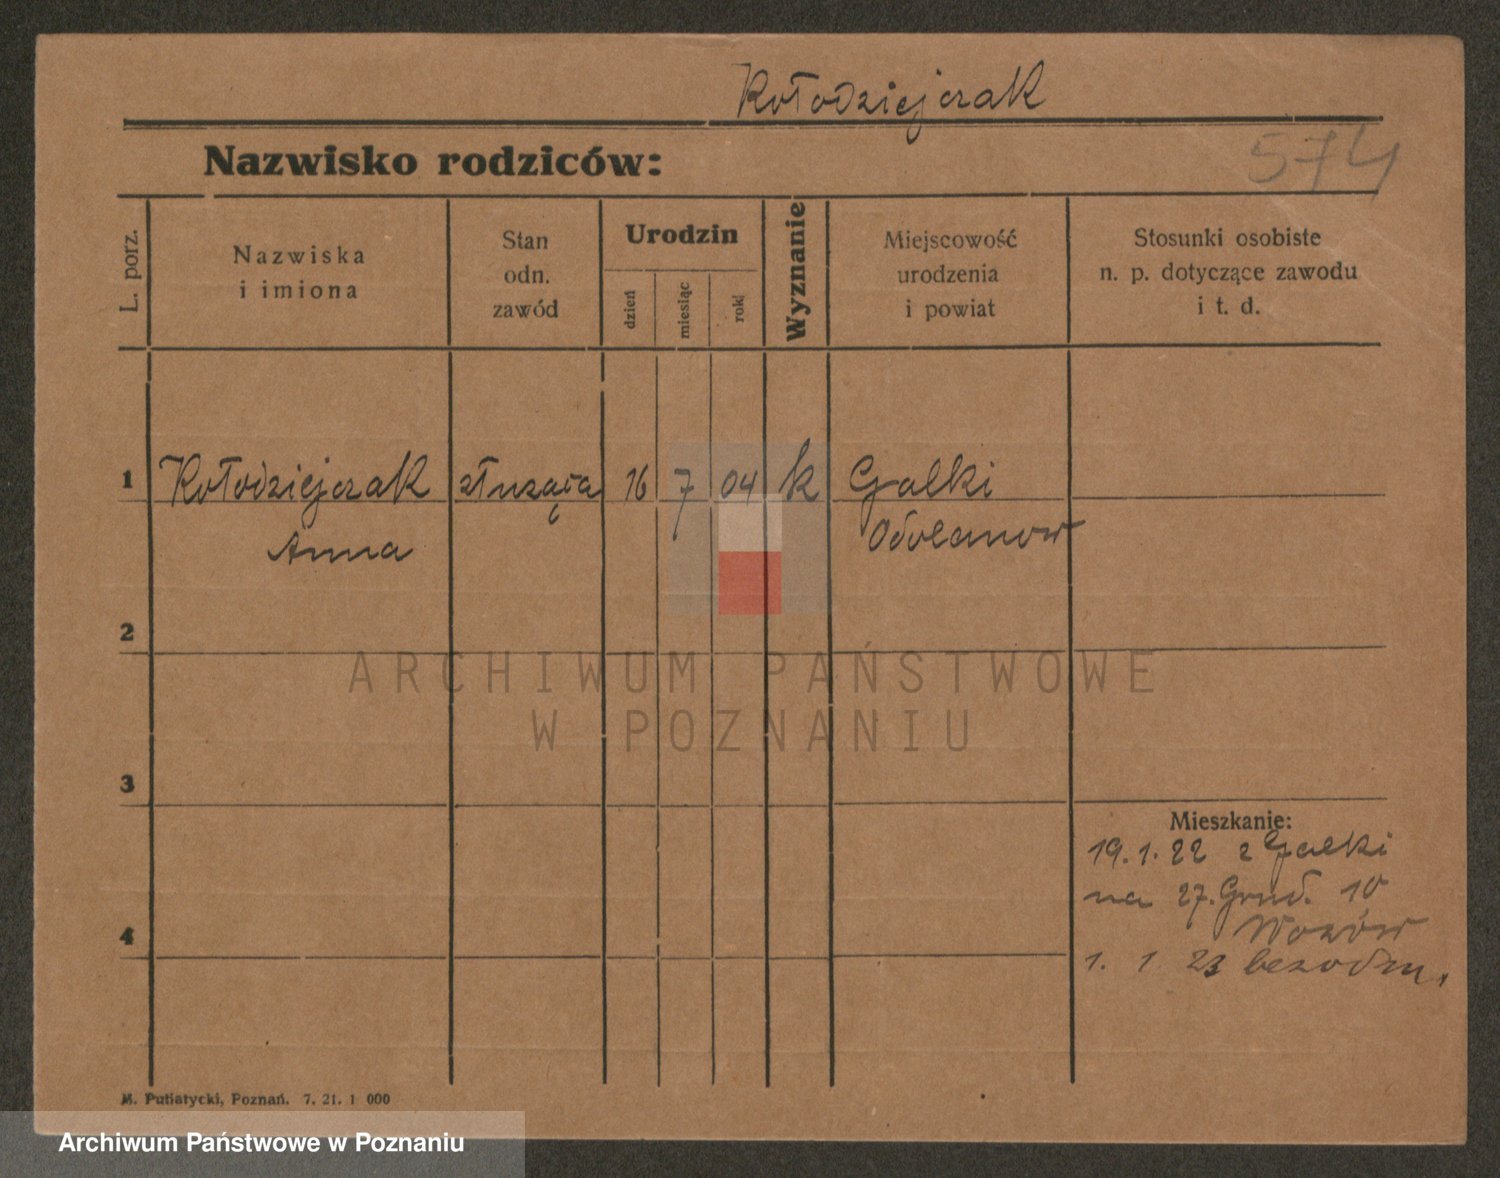 Kołodziejczak
Nazwisko rodziców:
574
L. porz.
Nazwiska
i imiona
Stan
odn.
zawód
Urodzin
dzień
miesiąc
rok
Wyznanie
Miejscowość
urodzenia
i powiat
Stosunki osobiste
n. p. dotyczące zawodu
i t. d.
1 Kołodziejczak służąca 16 7 04 k Galki
Anna Odolanow
2
ARCHIWUM PAŃSTWOWE
W POZNANIU
3
Mieszkanie:
19. 1. 22 z Galki
na 27. Grud. 10
4
1. 1 23
M. Putiatycki, Poznań. 7. 21. 1 000
Archiwum Państwowe w Poznaniu